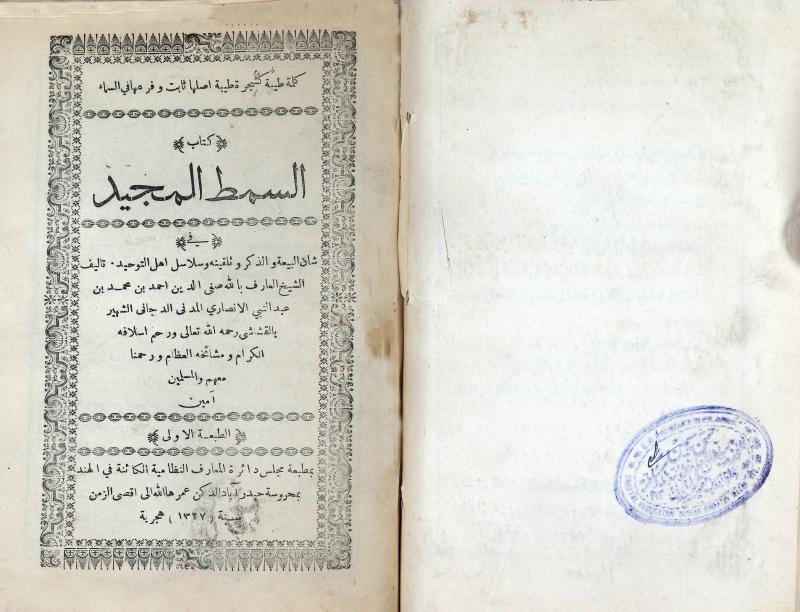 كلمة طيبة كشجرة طيبة اصلها ثابت و فرعها في السماء
كتاب
السمط المجيد
في
شان البيعة و الذكر و تلقينه و سلاسل اهل التوحيد - تاليف
الشيخ العارف بالله صفى الدين احمد بن محمد بن
عبد النبي الانصاري المدنى الدجانى الشهير
بالقشاشى رحمه الله تعالى و رحم اسلافه
الكرام و مشائخه العظام و رحمنا
معهم والمسلمين
آمين
الطبعة الاولى
بمطبعة مجلس دائرة المعارف النظامية الكائنة في الهند
بمحروسة حيدر آباد الدكن عمرها الله الى اقصى الزمن
سنة (١٣٢٧) هجرية